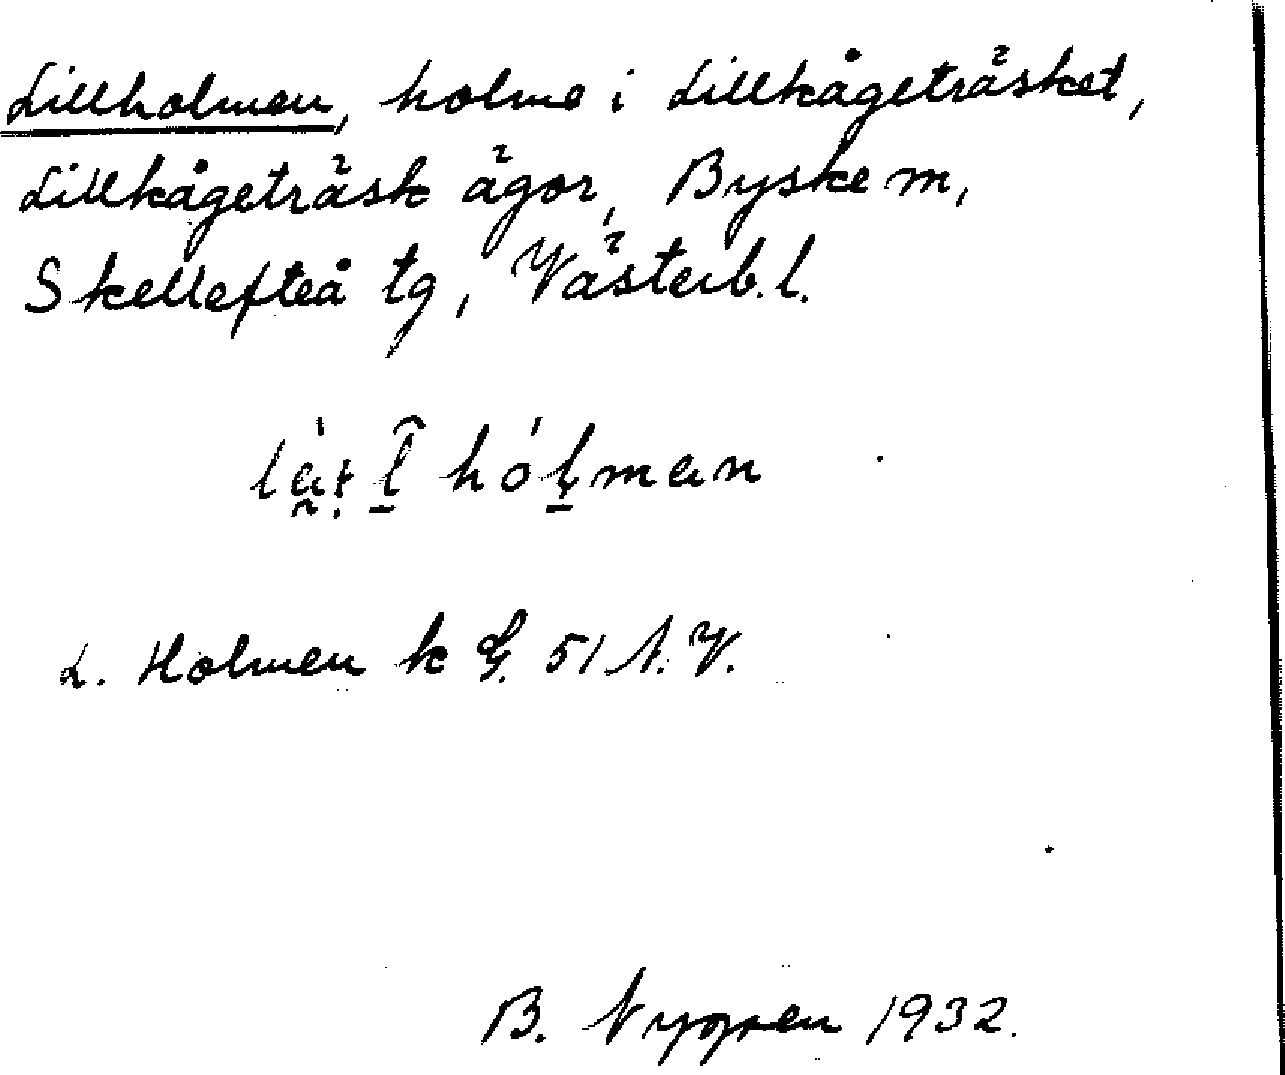 Lillholmen, holme i Lillkågeträsket,
Lillkågeträsk ägor, Byske sn,
Skellefteå tg, Västerb. l.
hóḷman
L. Holmen k G. 51 N.V.
B. Nygren 1932.